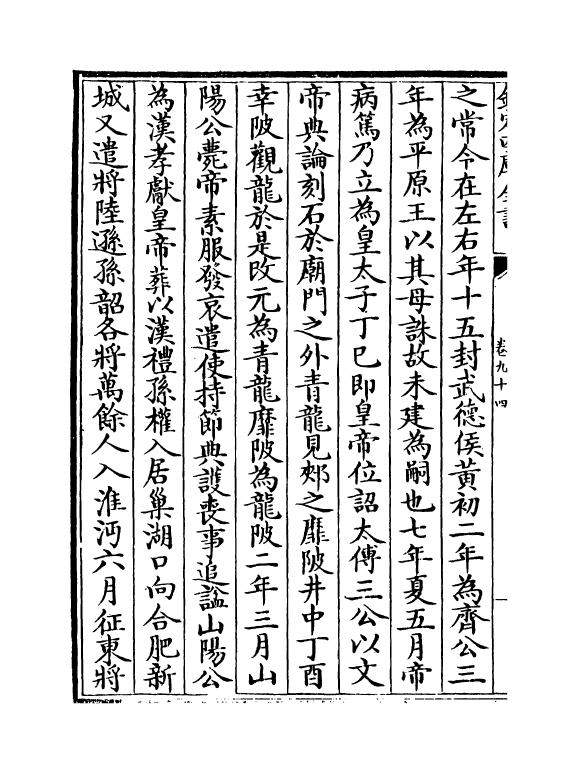 欽定四庫全書
卷九十四
之常令在左右年十五封武德侯黃初二年為齊公三
年為平原王以其母誅故未建為嗣也七年夏五月帝
病篤乃立為皇太子丁巳即皇帝位詔太傅三公以文
帝典論刻石於廟門之外青龍見郟之靡陂井中丁酉
幸陂觀龍於是改元為青龍靡陂為龍陂二年三月山
陽公薨帝素服發哀遣使持節典護喪事追諡山陽公
為漢孝獻皇帝葬以漢禮孫權入居巢湖口向合肥新
城又遣將陸遜孫韶各將萬餘人入淮沔六月征東將